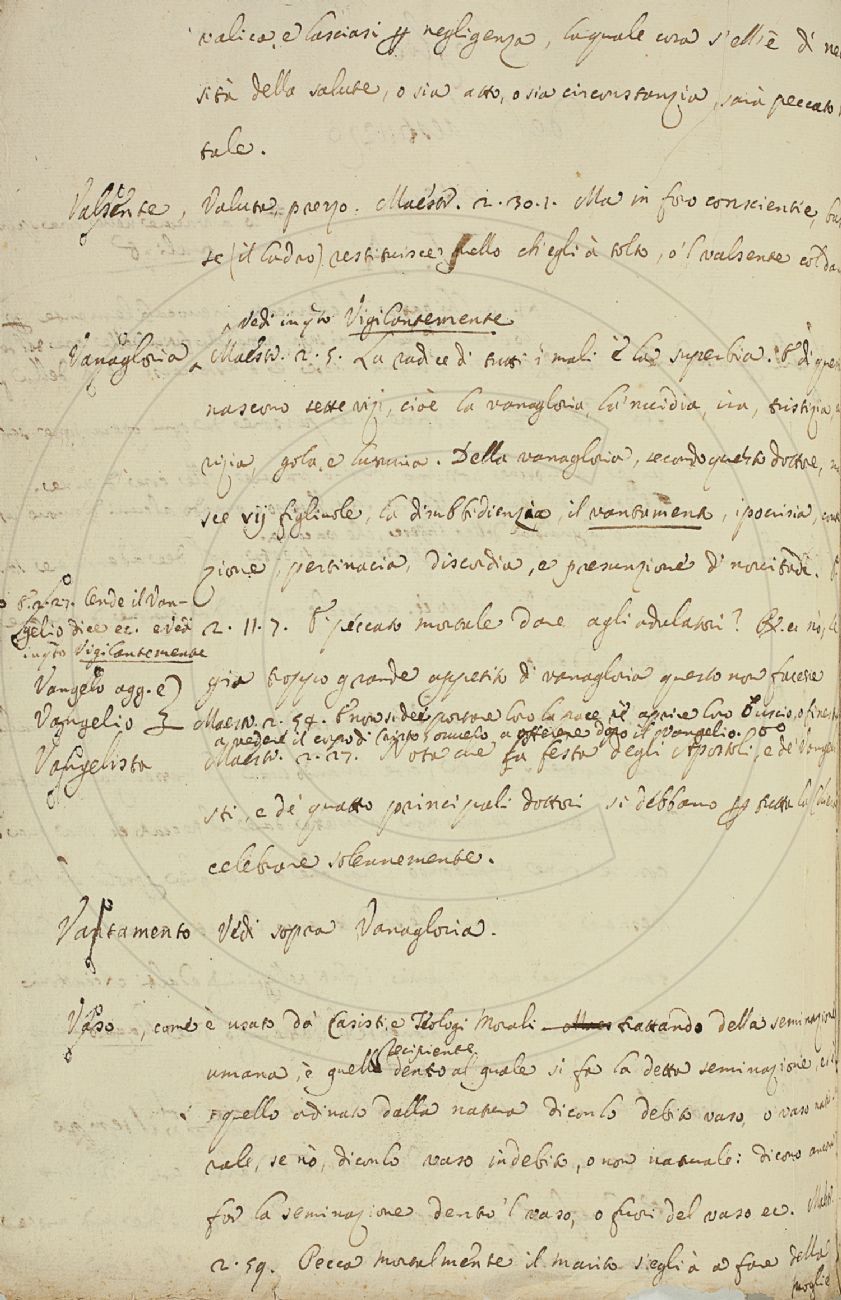 valico, e lasciasi p negligenza, la quale cosa s'ell'è di ne
sità della salute, o sia atto, o sia circonstanzia, sarà peccato
tale.
Valsente, Valuta, prezzo. Maestr. 2. 30. 1. Ma in foro conscientie, ba
se (il ladro) restituisce quello ch'egli à tolto, o 'l valsente col da
Vedi in qto Vigilantemente
Vanagloria Maestr. 2. 5. La radice di tutti i mali è la superbia. E di que
nascono sette vizj, cioè la vanagloria, la 'nvidia, ira, tristizia, a
rizia, gola, e luxuria. Della vanagloria, secondo questo dottore, na
sce vij figliuole, la disubbidienzia, il vantamento, ipocrisia, conte
zione, pertinacia, discordia, e presunzione di novitadi. E
E. 2. 27. Lende il Van-
gelio dice ec. e Vedi
in qto Vigilantemente
2. 11. 7. E' peccato mortale dare agli adulatori? R. ec. nò, se
già troppo grande appetito di vanagloria questo non facesse
Vangelo agg. e
Vangelio Maestr. 2. 54. E non si dee portare loro la pace, nè aprire loro l'uscio, o finestra
a vedere il corpo di Cristo, menarlo a offerere dopo il Vangelio.
Vangelista Maestr. 2. 27. Nota che la festa degli Apostoli, e de' Vangeli
sti, e de' quattro principali dottori si debbano p tutta la Chiesa
celebrare solennemente.
Vantamento Vedi sopra Vanagloria.
Vaso, come è usato da' Casisti, e Teologi Morali trattando della seminazione
umana, è quello recipiente dentro al quale si fa la detta seminazione, e s'è
quello ordinato dalla natura diconlo debito vaso, o vaso natu
rale, se nò, diconlo vaso indebito, o non naturale: dicono ancora
far la seminazione dentro 'l vaso, o fuori del vaso ec. Maestr.
2. 59. Pecca mortalmente il marito s'egli à a fare della
moglie